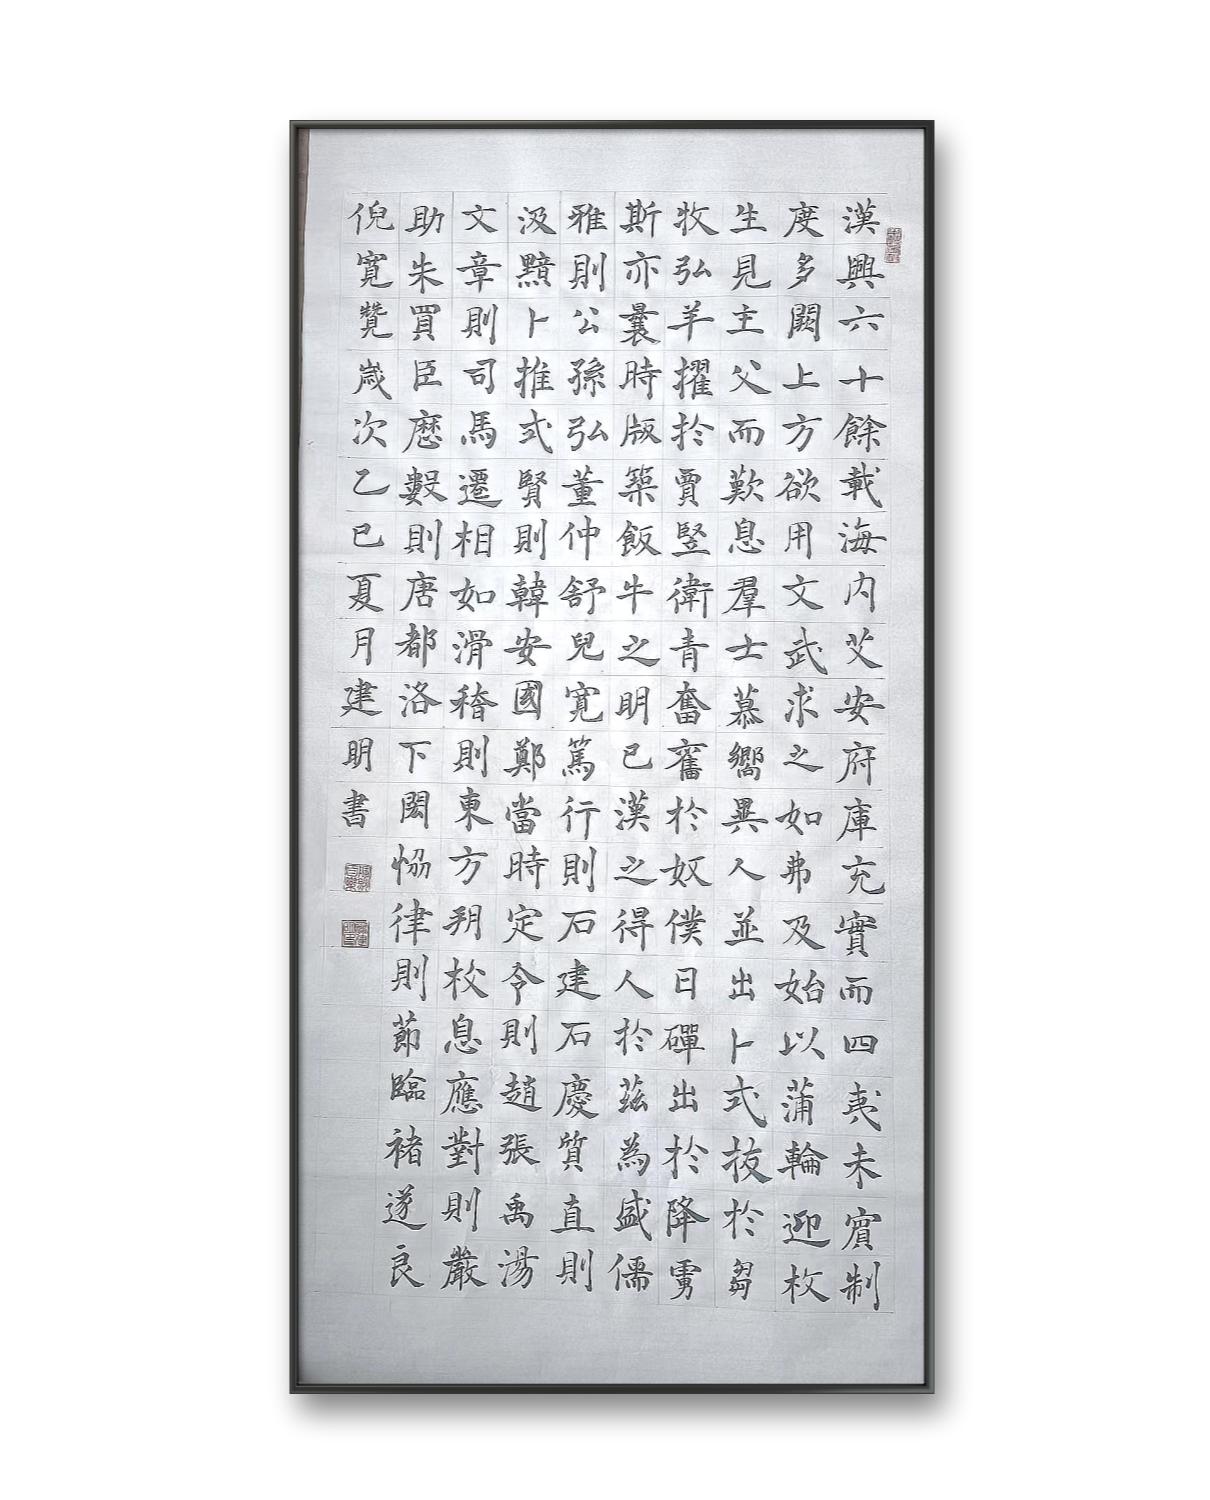 漢興六十餘載海內艾安府庫充實而四夷未賓制
度多闕上方欲用文武求之如弗及始以蒲輪迎枚
生見主父而歎息羣士慕嚮異人並出卜式拔於芻
牧弘羊擢於賈豎衛青奮奮於奴僕日磾出於降虜
斯亦曩時版築飯牛之明已漢之得人於茲為盛儒
雅則公孫弘董仲舒兒寬篤行則石建石慶質直則
汲黯卜推式賢則韓安國鄭當時定令則趙張禹湯
文章則司馬遷相如滑稽則東方朔枚息應對則嚴
助朱買臣歷數則唐都洛下閎恊律則節臨褚遂良
倪寬贊歲次乙巳夏月建明書